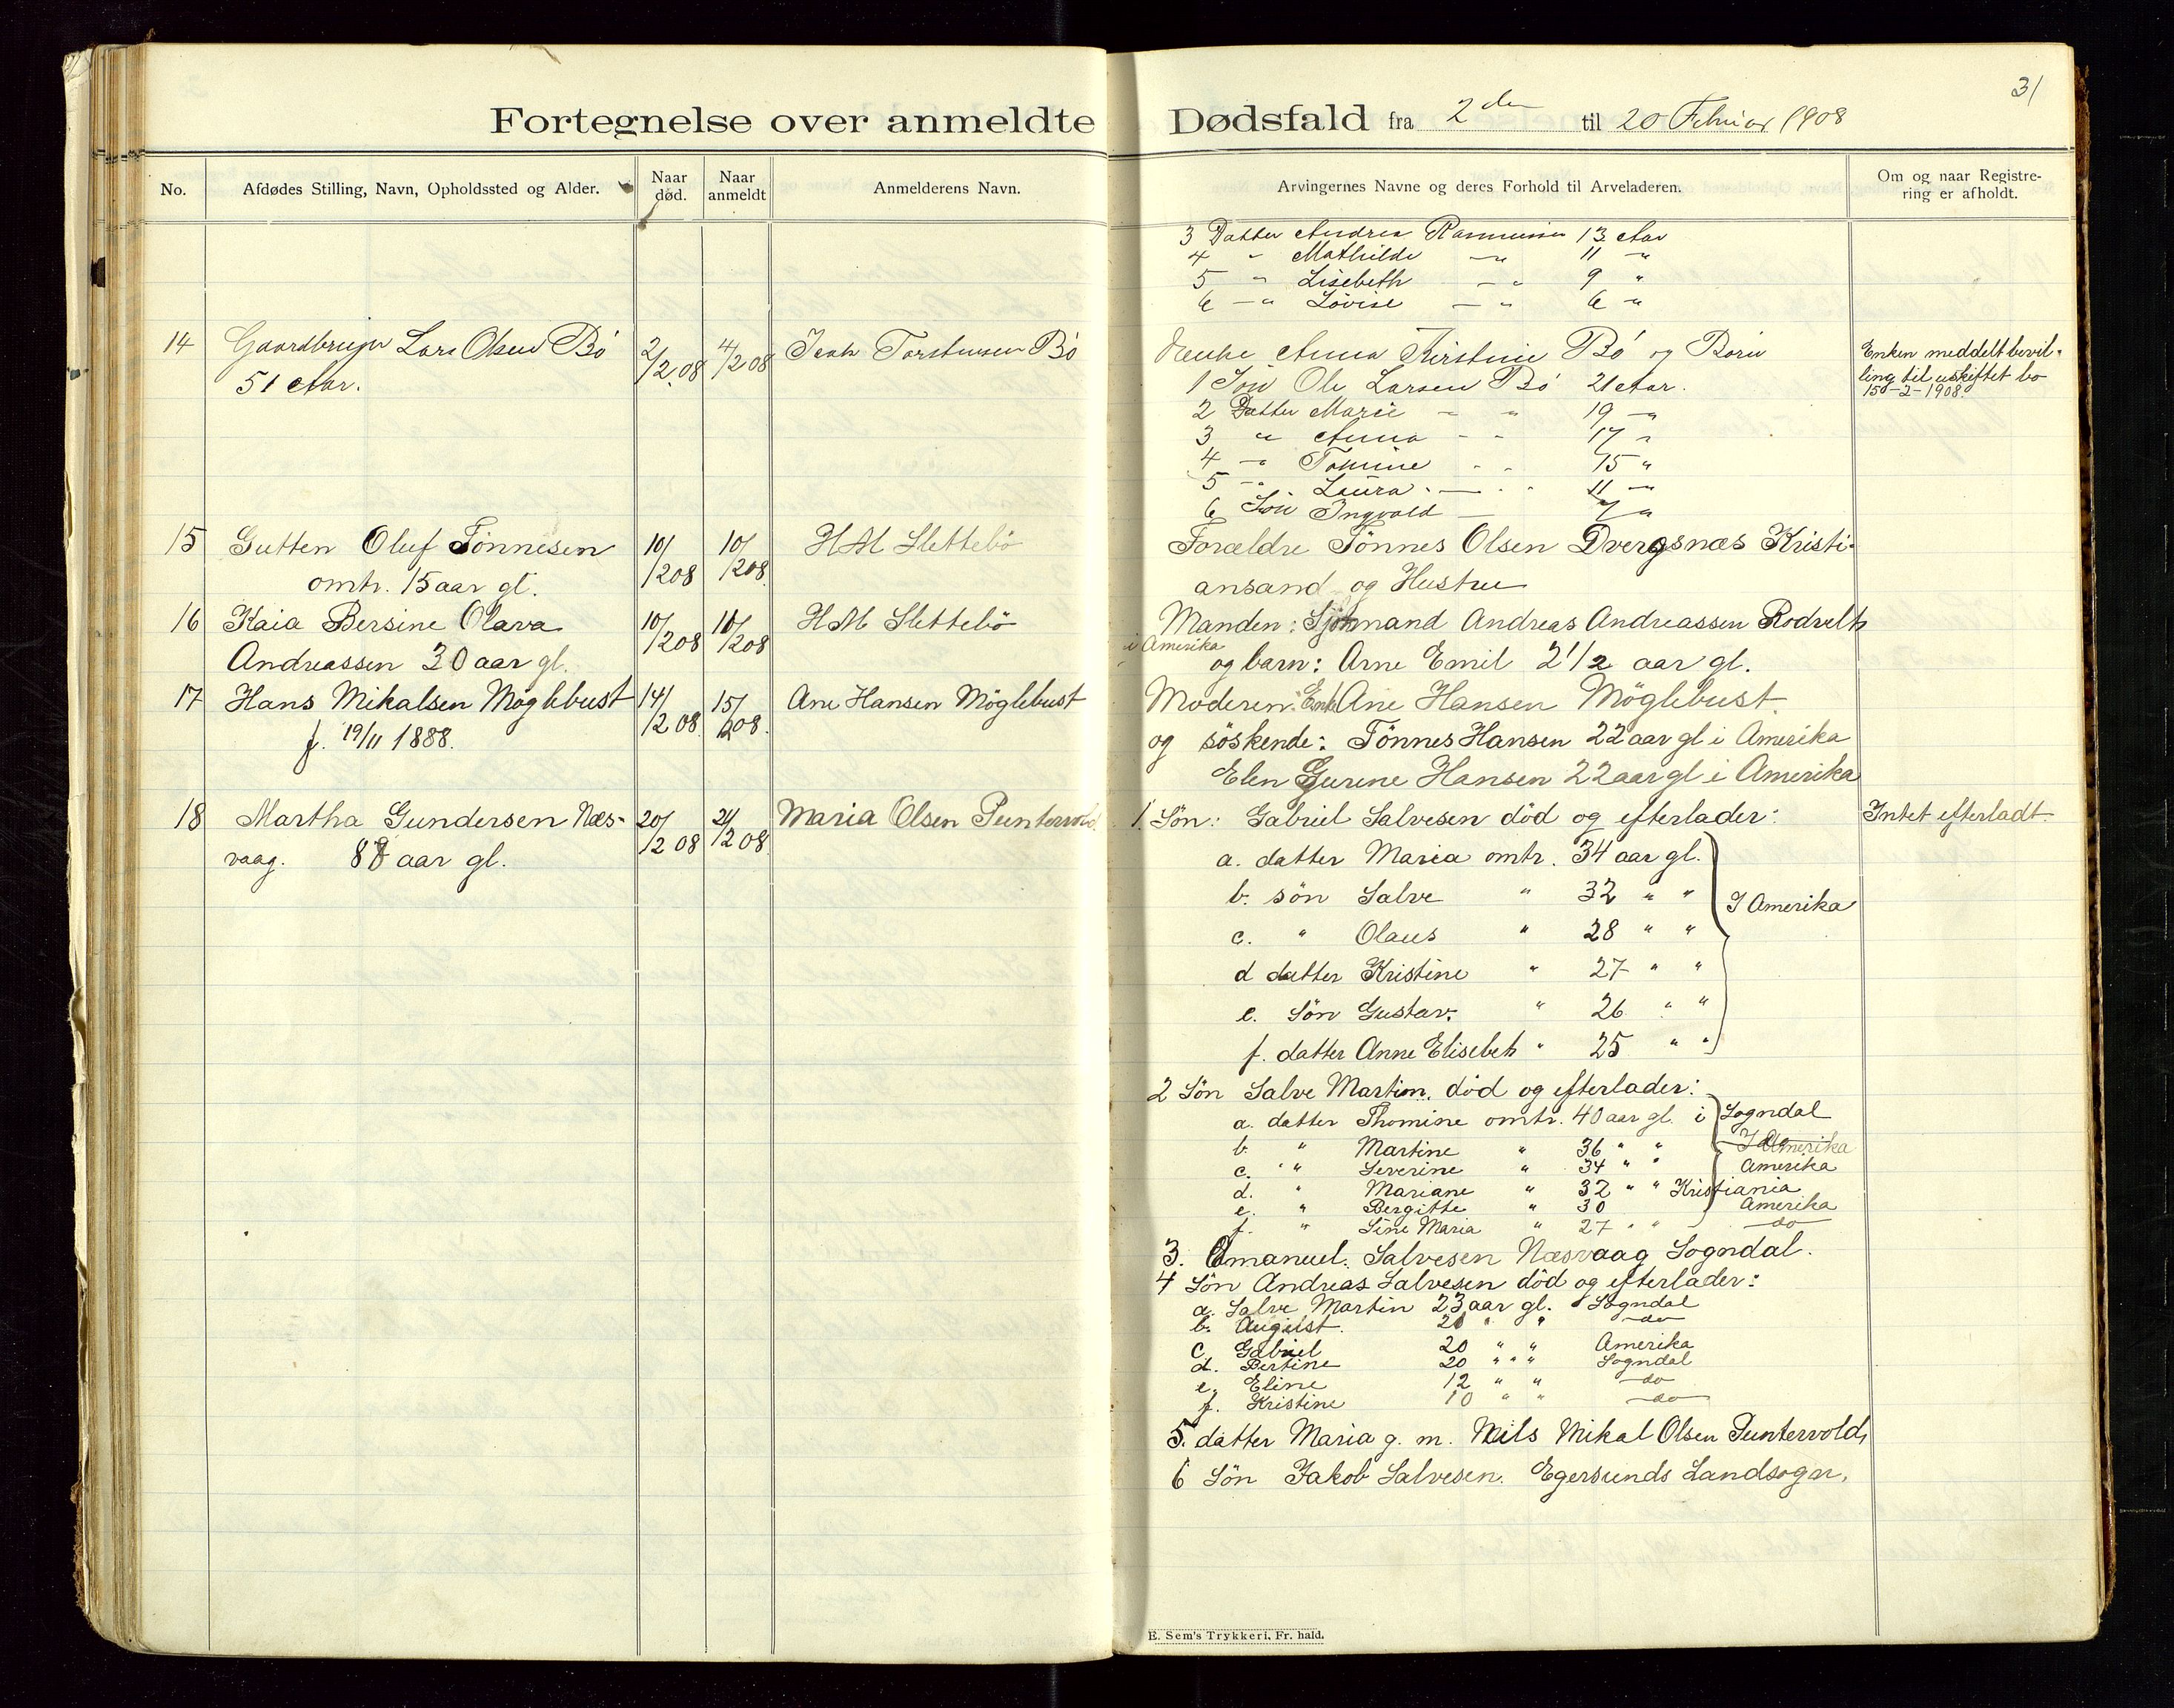 31
Fortegnelse over anmeldte Dødsfald fra 2den til 20 Februar 1908
No.
Afdødes Stilling, Navn, Opholdssted og Alder.
Naar død.
Naar anmeldt
Anmelderens Navn.
Arvingernes Navne og deres Forhold til Arveladeren.
Om og naar Registre-
ring er afholdt.
3 Datter Andrea Rasmussen 13 Aar
4 " Mathilde — " 11 — "
5 — " Lisebeth — " 9 "
6 — " Lovise — " 6 — "
14 Gaardbruger Lars Olsen Bö 2/2.08 4/2 08 Torstensen Bö
51 Aar.
Enke Anna Kirstine Bö og Börn
1 Sön Ole Larsen Bö 21 Aar.
2 Datter Marie — " 19 — "
3 " Anna - - 17 "
4 — " Tomine - - 15 "
5 — " Laura - — - 11 — "
6 Sön Ingvald — 7 "
Enken meddelt bevil-
ling til uskiftet bo
15-2-1908.
15 Gutten Oluf Tönnesen 10/2 08 10/2 08. H M Slettebö
omtr. 15 aar gl.
Forældre Tönnes Olsen Dvergsnæs Kristi-
ansand og Hustru
16 Kaia Bersine Olava 10/2 08 10/2 08 H M Slettebö
Andreassen 30 aar gl.
Manden: Sjömand Andreas Andreassen Rodvelt
i Amerika
og barn: Arne Emil 2 1/2 aar gl.
17 Hans Mikalsen Möglebust 14/2 08. 15/2 08. Ane Hansen Möglebust
f. 19/11 1888.
Moderen: Enke Ane Hansen Möglebust.
og söskende: Tönnes Hansen 22 aar gl i Amerika
Elen Gurine Hansen 22 aar gl i Amerika
18 Martha Gundersen Næs- 20/2 08 21/2 08. Maria Olsen Puntervold.
vaag. 88 aar gl.
1. Sön: Gabriel Salvesen död og efterlader:
Intet efterladt.
a. datter Maria omtr. 34 aar gl.
b. sön Salve " 32 " "
I Amerika
c. " Olaus " 28 " "
d datter Kristine " 27 " "
e. Sön Gustav. " 26 " "
f. datter Anne Elisebeth " 25 " "
2 Sön Salve Martin. död og efterlader:
a. datter Thomine omtr. 40 aar gl. i Sogndal
b. " Martine " 36 " " I Amerika
c. " Severine " 34 " " Amerika
d. " Mariane " 32 " " Kristiania
e. " Bergitte " 30 Amerika
f. " Sine Maria " 27 " " do
3. Emanuel. Salvesen Næsvaag Sogndal.
4 Sön Andreas Salvesen död og efterlader:
a. Salve Martin 23 aar gl. Sogndal
b. August. 20 " " do
c Gabriel 20 " " Amerika
d. Bertine 20 " " " Sogndal
e. Eline 12 " " do
f. Kristine 10 " " do
5. datter Maria g. m. Nils Mikal Olsen Puntervold,
6 Sön Jakob Salvesen. Egersunds Landsogn.
E. Sem's Trykkeri, Fr. hald.